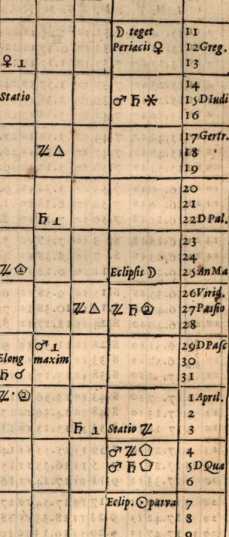 ☽ teget 11
Periacis ♀ 12 Greg.
♀ ⊥ 13
14
Statio ♂ ♄ ⚹ 15 D Iudi
16
17 Gertr.
♃ △ 18
19
20
21
♄ ⊥ 22 D Pal.
23
24
♃ Eclipsis ☽ 25 An Ma
26 Virid.
♃ △ ♃ ♄ 27 Passio
28
♂ ⊥ 29 D Pasc
Elong maxim 30
♄ ☌ 31
♃ 1 April.
2
♄ ⊥ Statio ♃ 3
♂ ♃ ⬠ 4
♂ ♄ ⬠ 5 D Qua
6
Eclip. ☉ parva 7
8
9